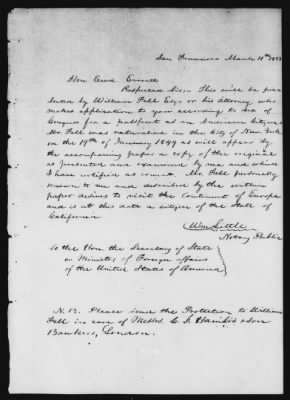 San Francisco March 11th 1853
Hon Edwd. Everett
Respected Sir, This will be pre
sented by William Fell Esq. or his Attorney who
makes application to you according to act of
Congress for a passport as an American Citizen
Mr. Fell was naturalized in the City of New York
on the 19th of January 1849 as will appear by
the accompanying paper a copy of the original
as presented and examined by me and which
I have certified as correct. Mr. Fell personally
known to me and described by the within
paper desires to visit the Continent of Europe
and is at this date a citizen of the State of
California
Wm Little
Notary Public
To the Hon. the Secretary of State
or Minister of Foreign affairs
of the United States of America
N.B. Please send the Protection to William
Fell in care of Messrs. & Son
Bankers, London.